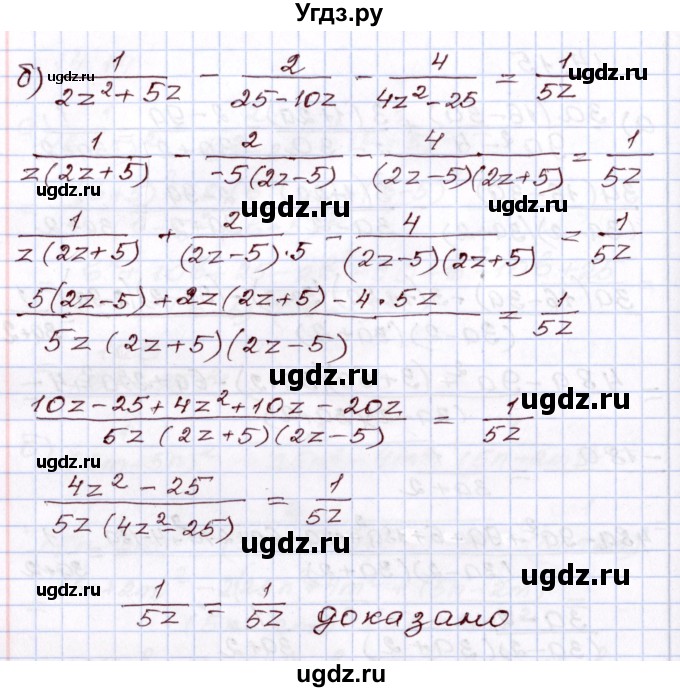 Угдз.ру
б) 1/(2z²+5z) - 2/(25-10z) - 4/(4z²-25) = 1/5z
1/(z(2z+5)) - 2/(-5(2z-5)) - 4/((2z-5)(2z+5)) = 1/5z
ugdz.ru ugdz.ru
1/(z(2z+5)) + 2/((2z-5)·5) - 4/((2z-5)(2z+5)) = 1/5z
ugdz.ru
(5(2z-5)+2z(2z+5)-4·5z)/(5z(2z+5)(2z-5)) = 1/5z
ugdz.ru
(10z-25+4z²+10z-20z)/(5z(2z+5)(2z-5)) = 1/5z
ugdz.ru
(4z²-25)/(5z(4z²-25)) = 1/5z
ugdz.ru
ugdz.ru
1/5z = 1/5z доказано
ugdz.ru ugdz.ru